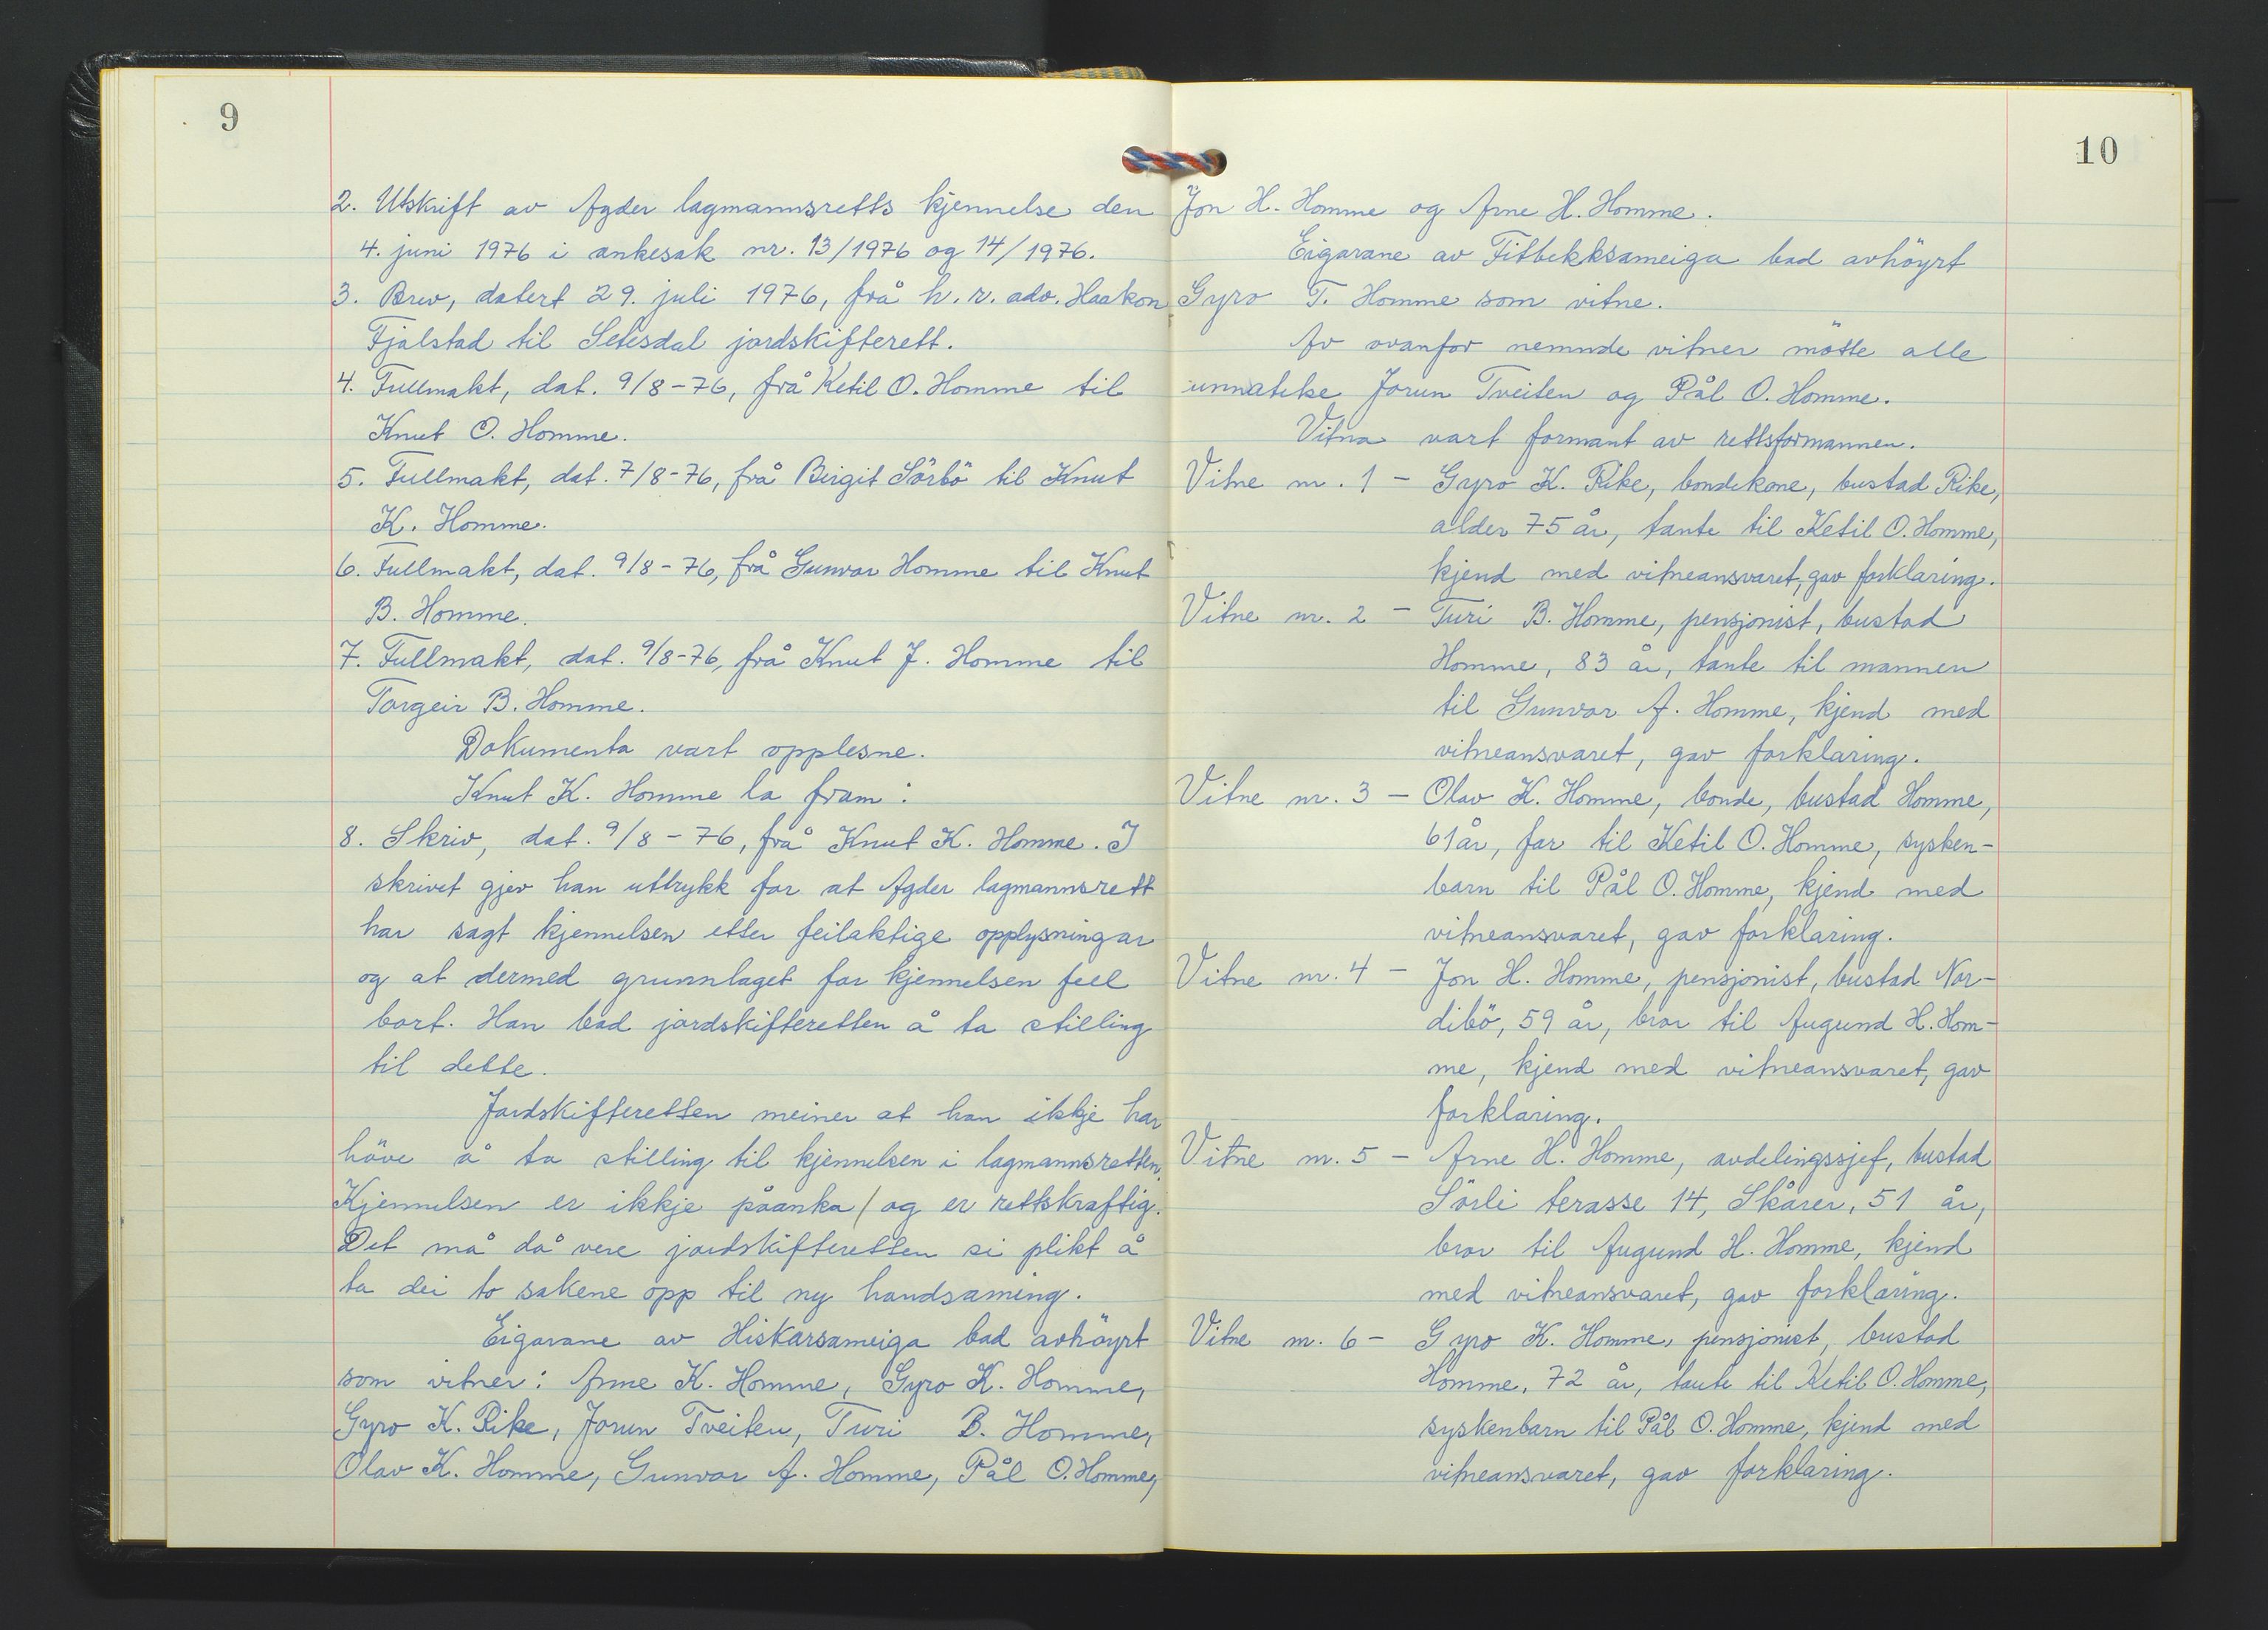 9
2. Utskrift av Agder lagmannsretts kjennelse den
4. juni 1976 i ankesak nr. 13/1976 og 14/1976.
3. Brev, datert 29. juli 1976, frå h.r. adv. Haakon
Fjalstad til Setesdal jordskifterett.
4. Fullmakt, dat. 9/8-76, frå Ketil O. Homme til
Knut O. Homme.
5. Fullmakt, dat. 7/8-76, frå Birgit Sörbö til Knut
K. Homme.
6. Fullmakt, dat. 9/8-76, frå Gunvor Homme til Knut
B. Homme.
7. Fullmakt, dat. 9/8-76, frå Knut J. Homme til
Torgeir B. Homme.
Dokumenta vart opplesne.
Knut K. Homme la fram:
8. Skriv, dat. 9/8-76, frå Knut K. Homme. I
skrivet gjev han uttrykk for at Agder lagmannsrett
har sagt kjennelsen etter feilaktige opplysningar
og at dermed grunnlaget for kjennelsen fell
bort. Han bad jordskifteretten å ta stilling
til dette.
Jordskifteretten meiner at han ikkje har
höve å ta stilling til kjennelsen i lagmannsretten.
Kjennelsen er ikkje påanka / og er rettskraftig.
Det må då vere jordskifteretten si plikt å
ta dei to sakene opp til ny handsaming.
Eigarane av Hiskarsameiga bad avhöyrt
som vitner: Anne K. Homme, Gyro K. Homme,
Gyro K. Rike, Jorun Tveiten, Turi B. Homme,
Olav K. Homme, Gunvor A. Homme, Pål O. Homme,
10
Jon H. Homme og Arne H. Homme.
Eigarane av Fitbekksameiga bad avhöyrt
Gyro T. Homme som vitne.
Av ovanfor nemnde vitner mötte alle
unnateke Jorun Tveiten og Pål O. Homme.
Vitna vart formant av rettsformannen.
Vitne nr. 1 - Gyro K. Rike, bondekone, bustad Rike,
alder 75 år, tante til Ketil O. Homme,
kjend med vitneansvaret, gav forklaring.
Vitne nr. 2 - Turi B. Homme, pensjonist, bustad
Homme, 83 år, tante til mannen
til Gunvor A. Homme, kjend med
vitneansvaret, gav forklaring.
Vitne nr. 3 - Olav K. Homme, bonde, bustad Homme,
61 år, far til Ketil O. Homme, sysken-
barn til Pål O. Homme, kjend med
vitneansvaret, gav forklaring.
Vitne nr. 4 - Jon H. Homme, pensjonist, bustad Nor-
dibö, 59 år, bror til Augund H. Hom-
me, kjend med vitneansvaret, gav
forklaring.
Vitne nr. 5 - Arne H. Homme, avdelingssjef, bustad
Sörli terasse 14, Skårer, 51 år,
bror til Augund H. Homme, kjend
med vitneansvaret, gav forklaring.
Vitne nr. 6 - Gyro K. Homme, pensjonist, bustad
Homme, 72 år, tante til Ketil O. Homme,
syskenbarn til Pål O. Homme, kjend med
vitneansvaret, gav forklaring.